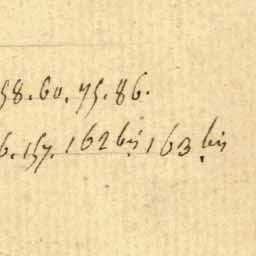 58.60.75.86.
6.157.162 bis 163 bis